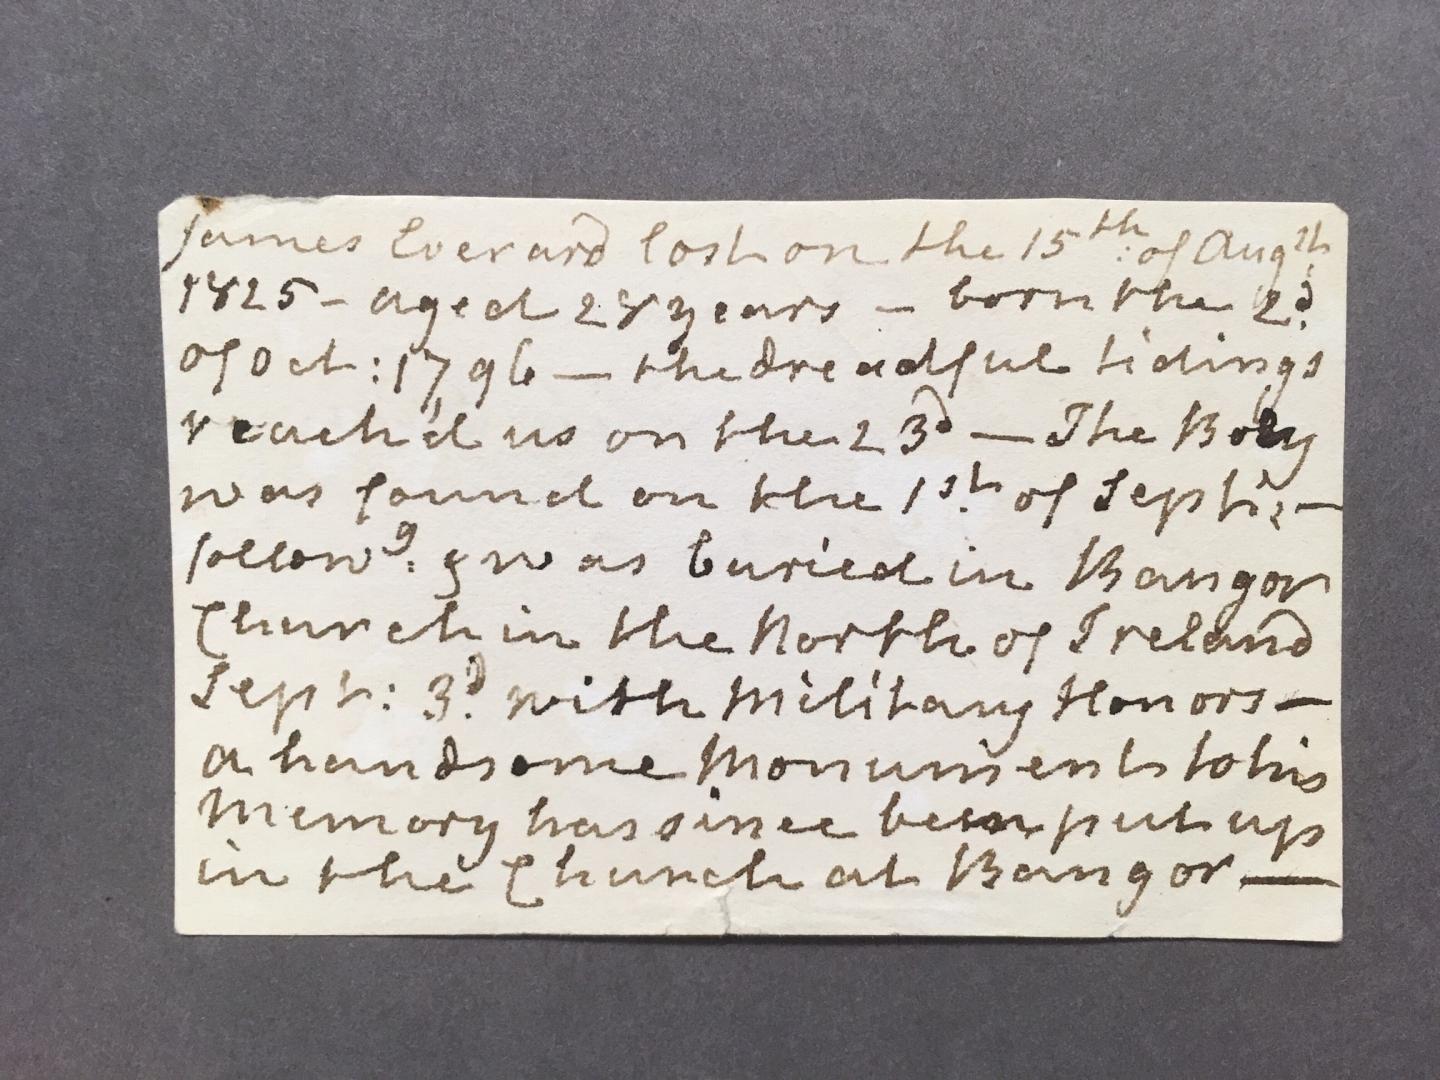 James Everard lost on the 15th: of Augst
1825 - aged 28 years - born the 2d.
of Oct: 1796 — the dreadful tidings
reach'd us on the 23d — The Body
was found on the 1st. of Septr: —
follow'g: & was buried in Bangor
Church in the North of Ireland
Sept: 3d. with Military Honors —
a handsome Monument to his
Memory has since been put up
in the Church at Bangor —